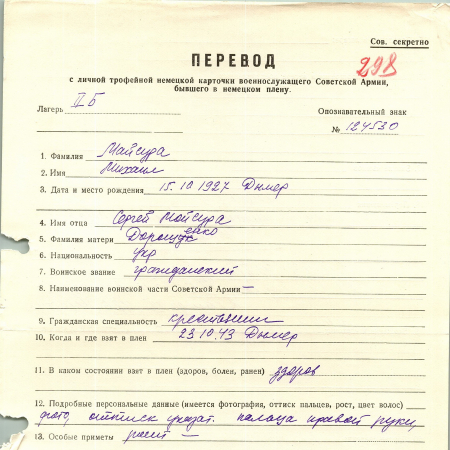 Сов. секретно
298
ПЕРЕВОД
с личной трофейной немецкой карточки военнослужащего Советской Армии,
бывшего в немецком плену.
Лагерь IIБ
Опознавательный знак
№ 124530
1. Фамилия Майсура
2. Имя Михаил
3. Дата и место рождения 15.10 1927 Дымер
4. Имя отца Сергей Мойсура
5. Фамилия матери Дорощенко
6. Национальность укр
7. Воинское звание гражданский
8. Наименование воинской части Советской Армии —
9. Гражданская специальность крестьянин
10. Когда и где взят в плен 23 10.43 Дымер
11. В каком состоянии взят в плен (здоров, болен, ранен) здоров
12. Подробные персональные данные (имеется фотография, оттиск пальцев, рост, цвет волос)
фото, оттиск указат. пальца правой руки,
13. Особые приметы рост —